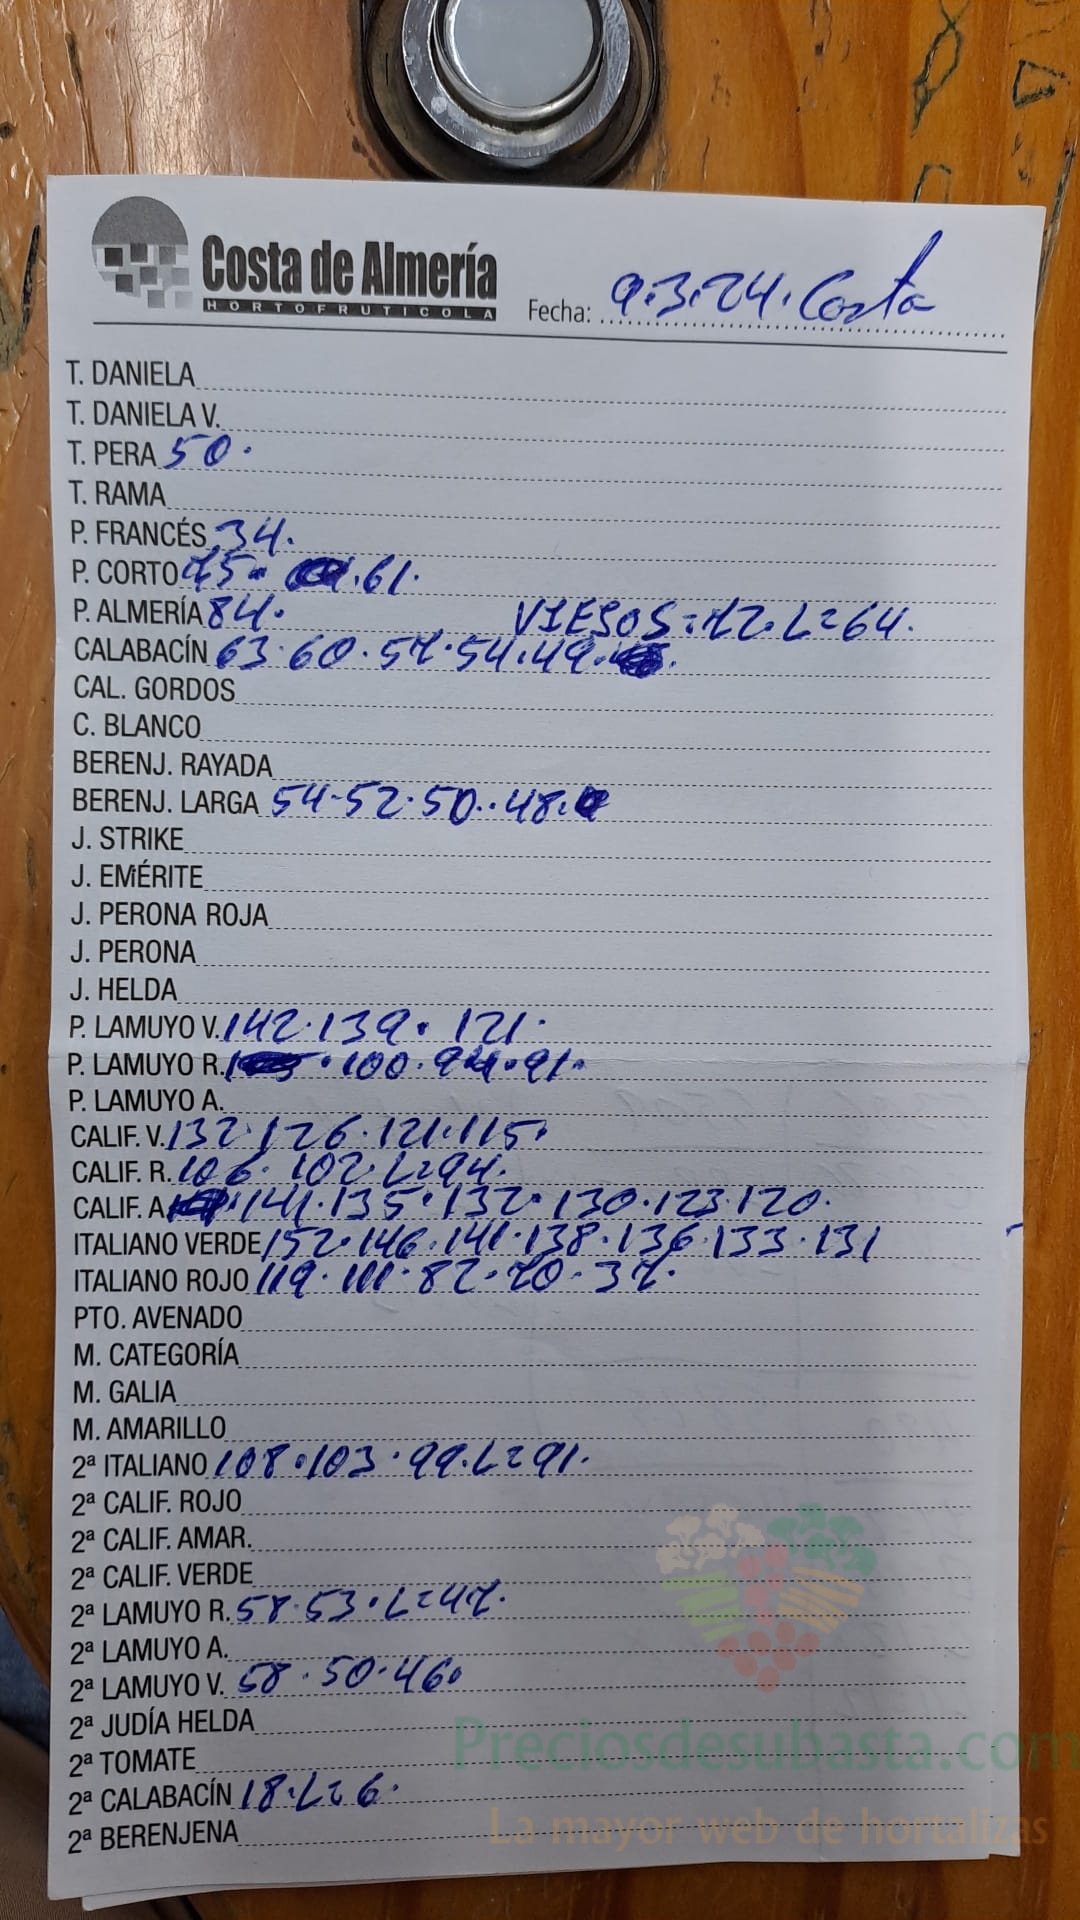 Costa de Almería
HORTOFRUTICOLA
Fecha: 9.3.24. Costa
T. DANIELA
T. DANIELA V.
T. PERA 50.
T. RAMA
P. FRANCÉS 34.
P. CORTO 75. 61.
P. ALMERÍA 84. VIESOS=72.L=64.
CALABACÍN 63.60.57.54.49.
CAL. GORDOS
C. BLANCO
BERENJ. RAYADA
BERENJ. LARGA 54-52.50..48.
J. STRIKE
J. EMÉRITE
J. PERONA ROJA
J. PERONA
J. HELDA
P. LAMUYO V. 142.139. 121.
P. LAMUYO R. 100.94.91.
P. LAMUYO A.
CALIF. V. 132.126.121.115.
CALIF. R. 106. 102.L=94.
CALIF. A. 141.135.132.130.123.120.
ITALIANO VERDE 152.146.141.138.136.133.131
ITALIANO ROJO 119.111.82.70.37.
PTO. AVENADO
M. CATEGORÍA
M. GALIA
M. AMARILLO
2ª ITALIANO 108.103.99.L=91.
2ª CALIF. ROJO
2ª CALIF. AMAR.
2ª CALIF. VERDE
2ª LAMUYO R. 58.53.L=47.
2ª LAMUYO A.
2ª LAMUYO V. 58.50.46.
2ª JUDÍA HELDA
2ª TOMATE
2ª CALABACÍN 18.L=6.
2ª BERENJENA
Preciosdesubasta.com
La mayor web de hortalizas